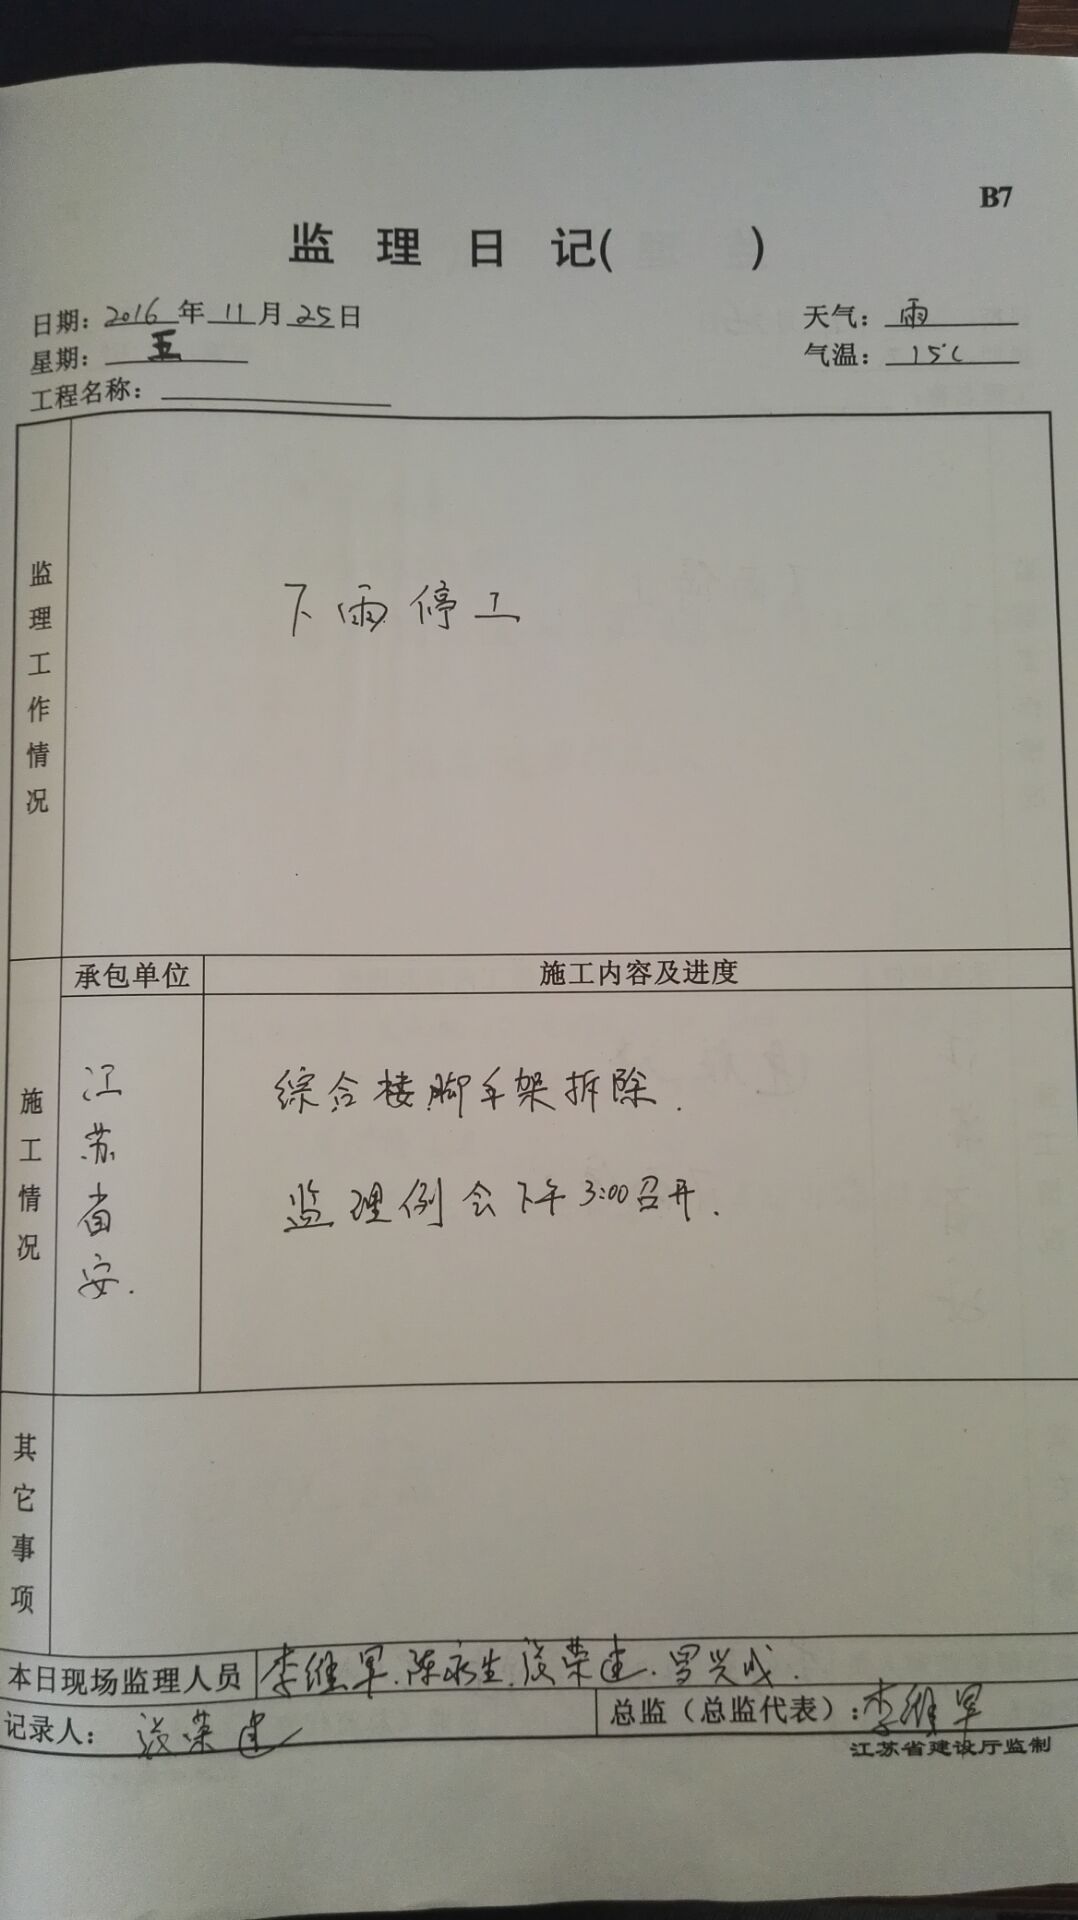 B7
监 理 日 记(          )
日期：2016 年 11 月 25 日
天气：雨
星期：五
气温：15℃
工程名称：
监理工作情况
下雨停工
承包单位
施工内容及进度
施工情况
江苏省安.
综合楼脚手架拆除.
监理例会下午3:00召开.
其它事项
本日现场监理人员
李继军.陈永生.
荣建.
兴成.
记录人：
荣建
总监（总监代表）:李继军
江苏省建设厅监制